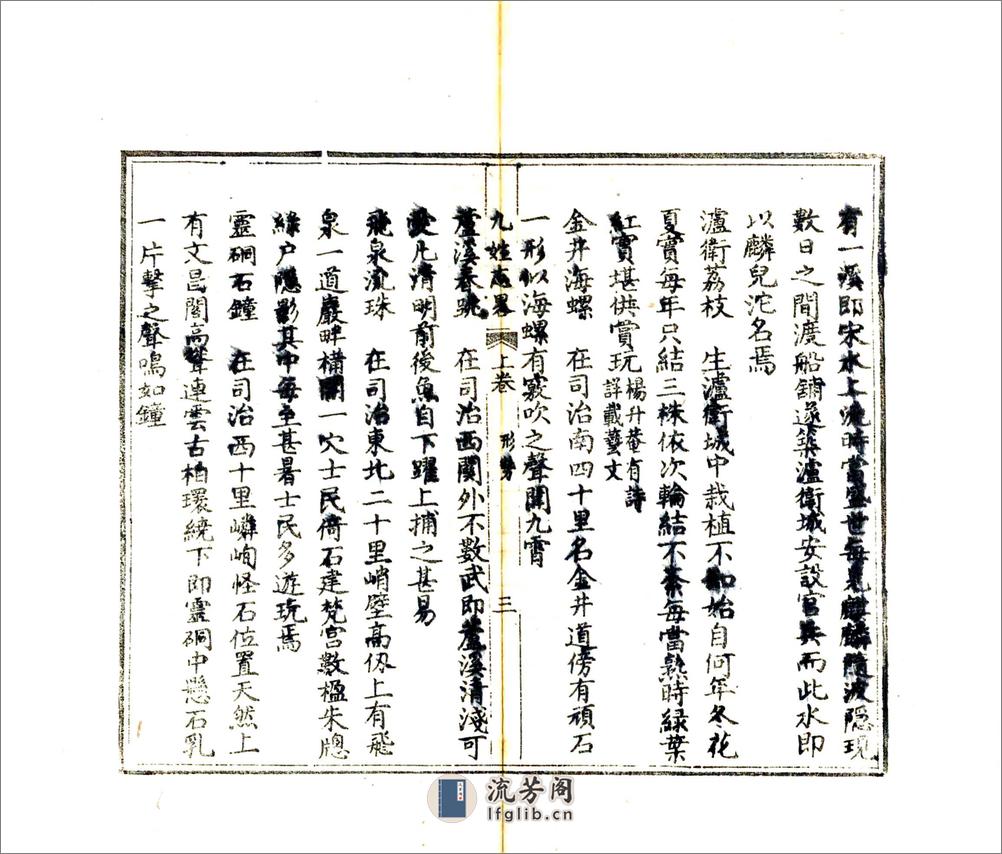 有一溪即宋水上流時當盛世每見麒麟隨波隱現
數日之間渡船鏽遂築瀘衛城安設官兵而此水即
以麟兒沱名焉
瀘衛荔枝　生瀘衛城中栽植不知始自何年冬花
夏實每年只結三株依次輪結不紊每當熟時綠葉
紅實堪供賞玩楊升菴有詩詳載藝文
金井海螺　在司治南四十里名金井道傍有頑石
一形似海螺有竅吹之聲聞九霄
九姓志畧　上卷　形勢　三
蘆溪春跳　在司治西關外不數武即蘆溪清淺可
愛凡清明前後魚自下躍上捕之甚易
飛泉流珠　在司治東北二十里峭壁高仞上有飛
泉一道巖畔構閣一穴士民倚石建梵宮數楹朱牕
綠户隱影其中每至甚暑士民多遊玩焉
靈硐石鐘　在司治西十里嶙峋怪石位置天然上
有文昌閣高聳連雲古柏環繞下即靈硐中懸石乳
一片擊之聲鳴如鐘
流芳阁
lfglib.cn